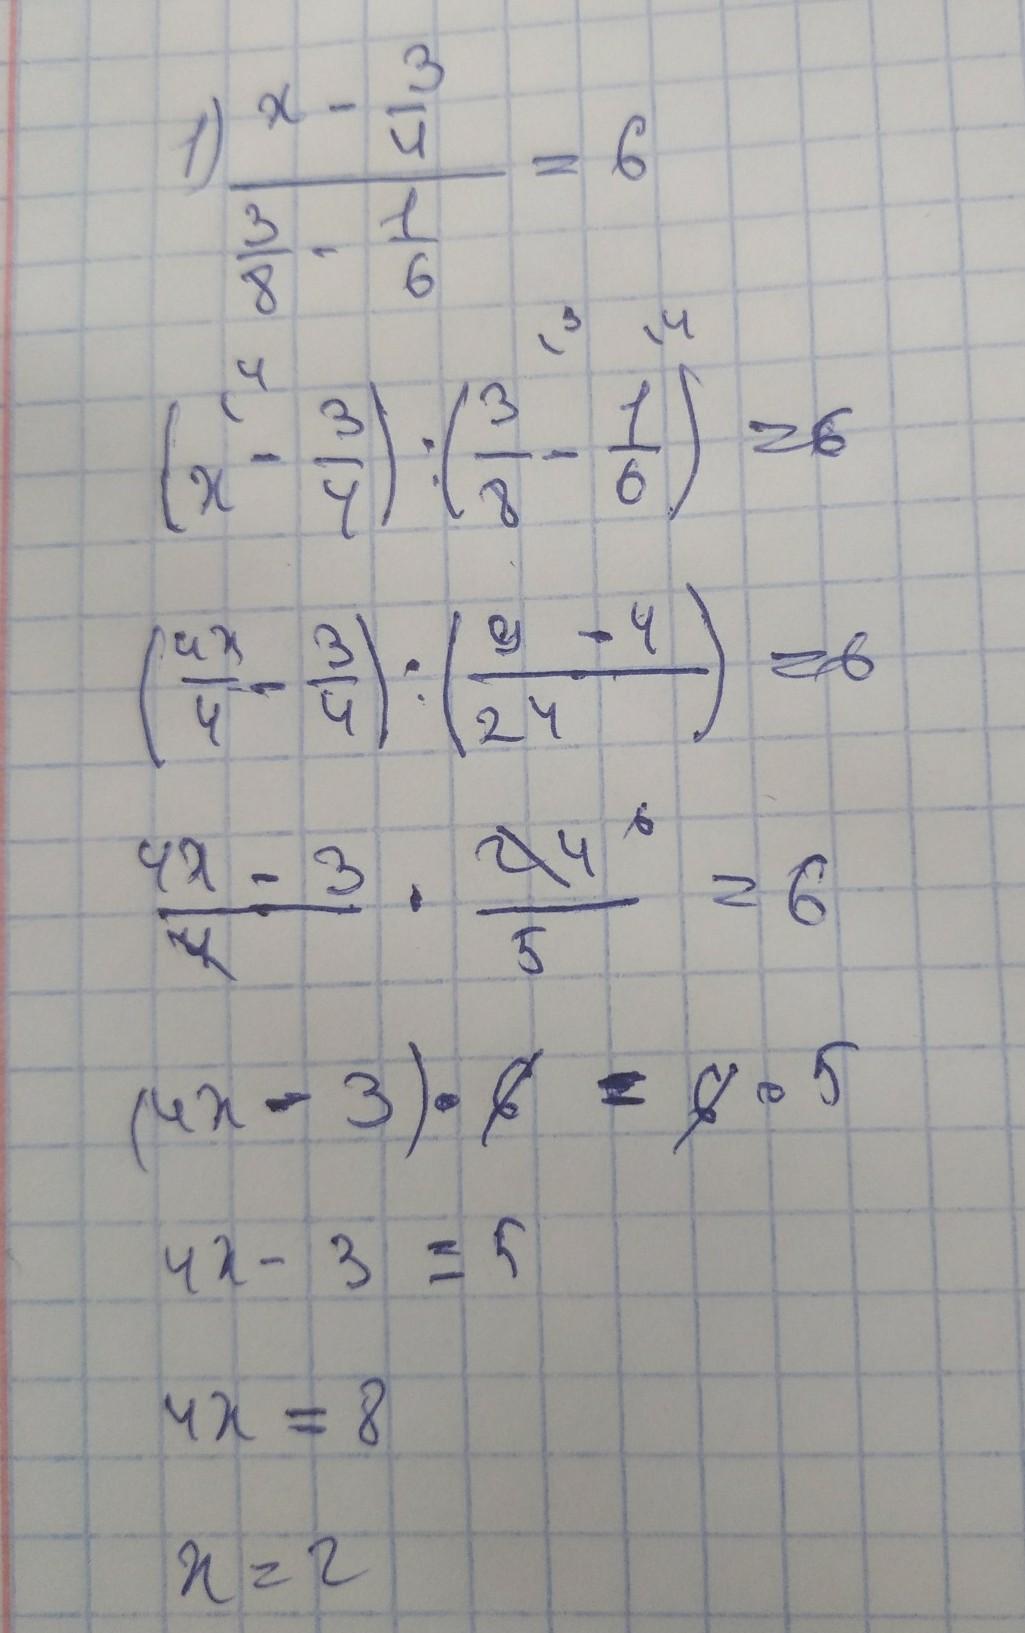 1) (x - 3/4) / (3/8 - 1/6) = 6
(x⁴ - 3/4) : (3/8³ - 1/6⁴) = 6
(4x/4 - 3/4) : ((9 - 4)/24) = 6
(4x - 3)/4 · 24⁶/5 = 6
(4x - 3) · 6 = 6 · 5
4x - 3 = 5
4x = 8
x = 2